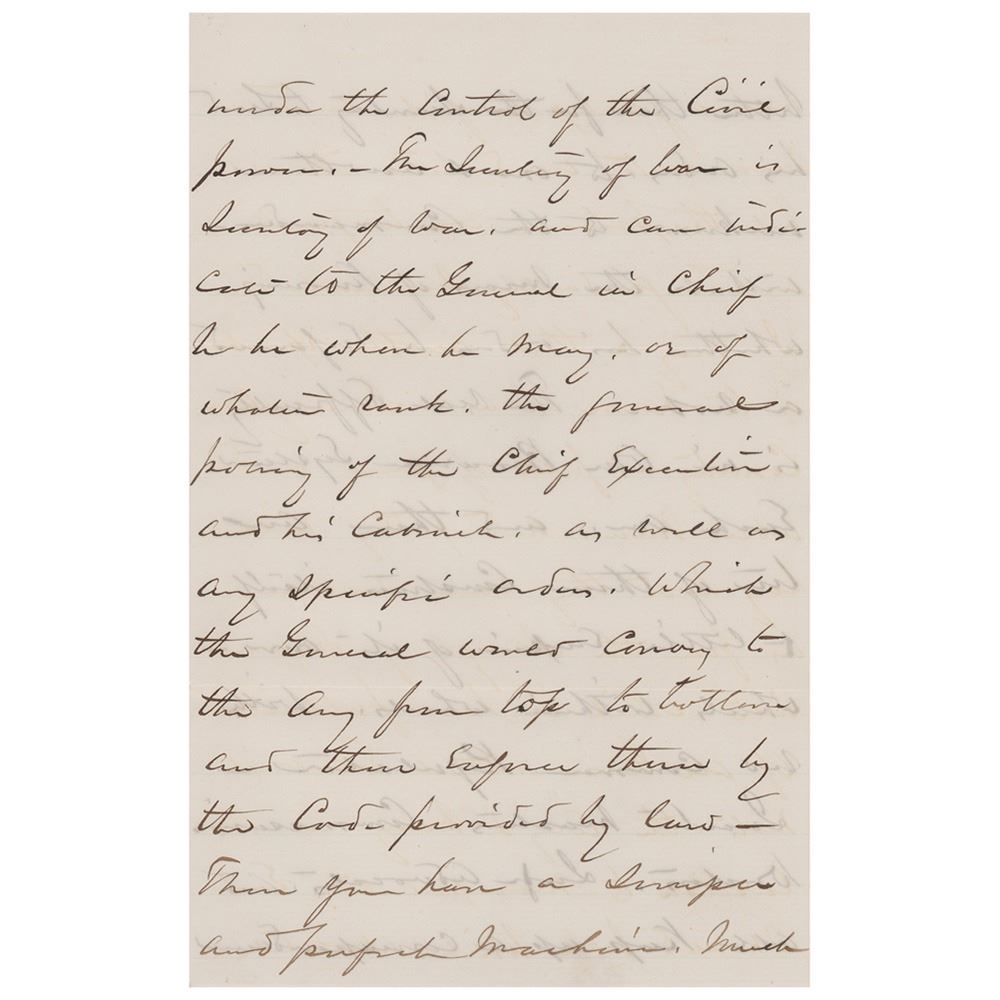 under the Control of the Civil
power. – The Secretary of War is
Secretary of War. and can indi-
cate to the General in Chief
be he when he may. or of
whatever rank. the general
policy of the Chief Executive
and his Cabinet. as well as
any Specific orders. Which
the General would Convey to
the Army from top to bottom
and then Enforce them by
the Code provided by law –
Then you have a Simple
and perfect Machine. Much